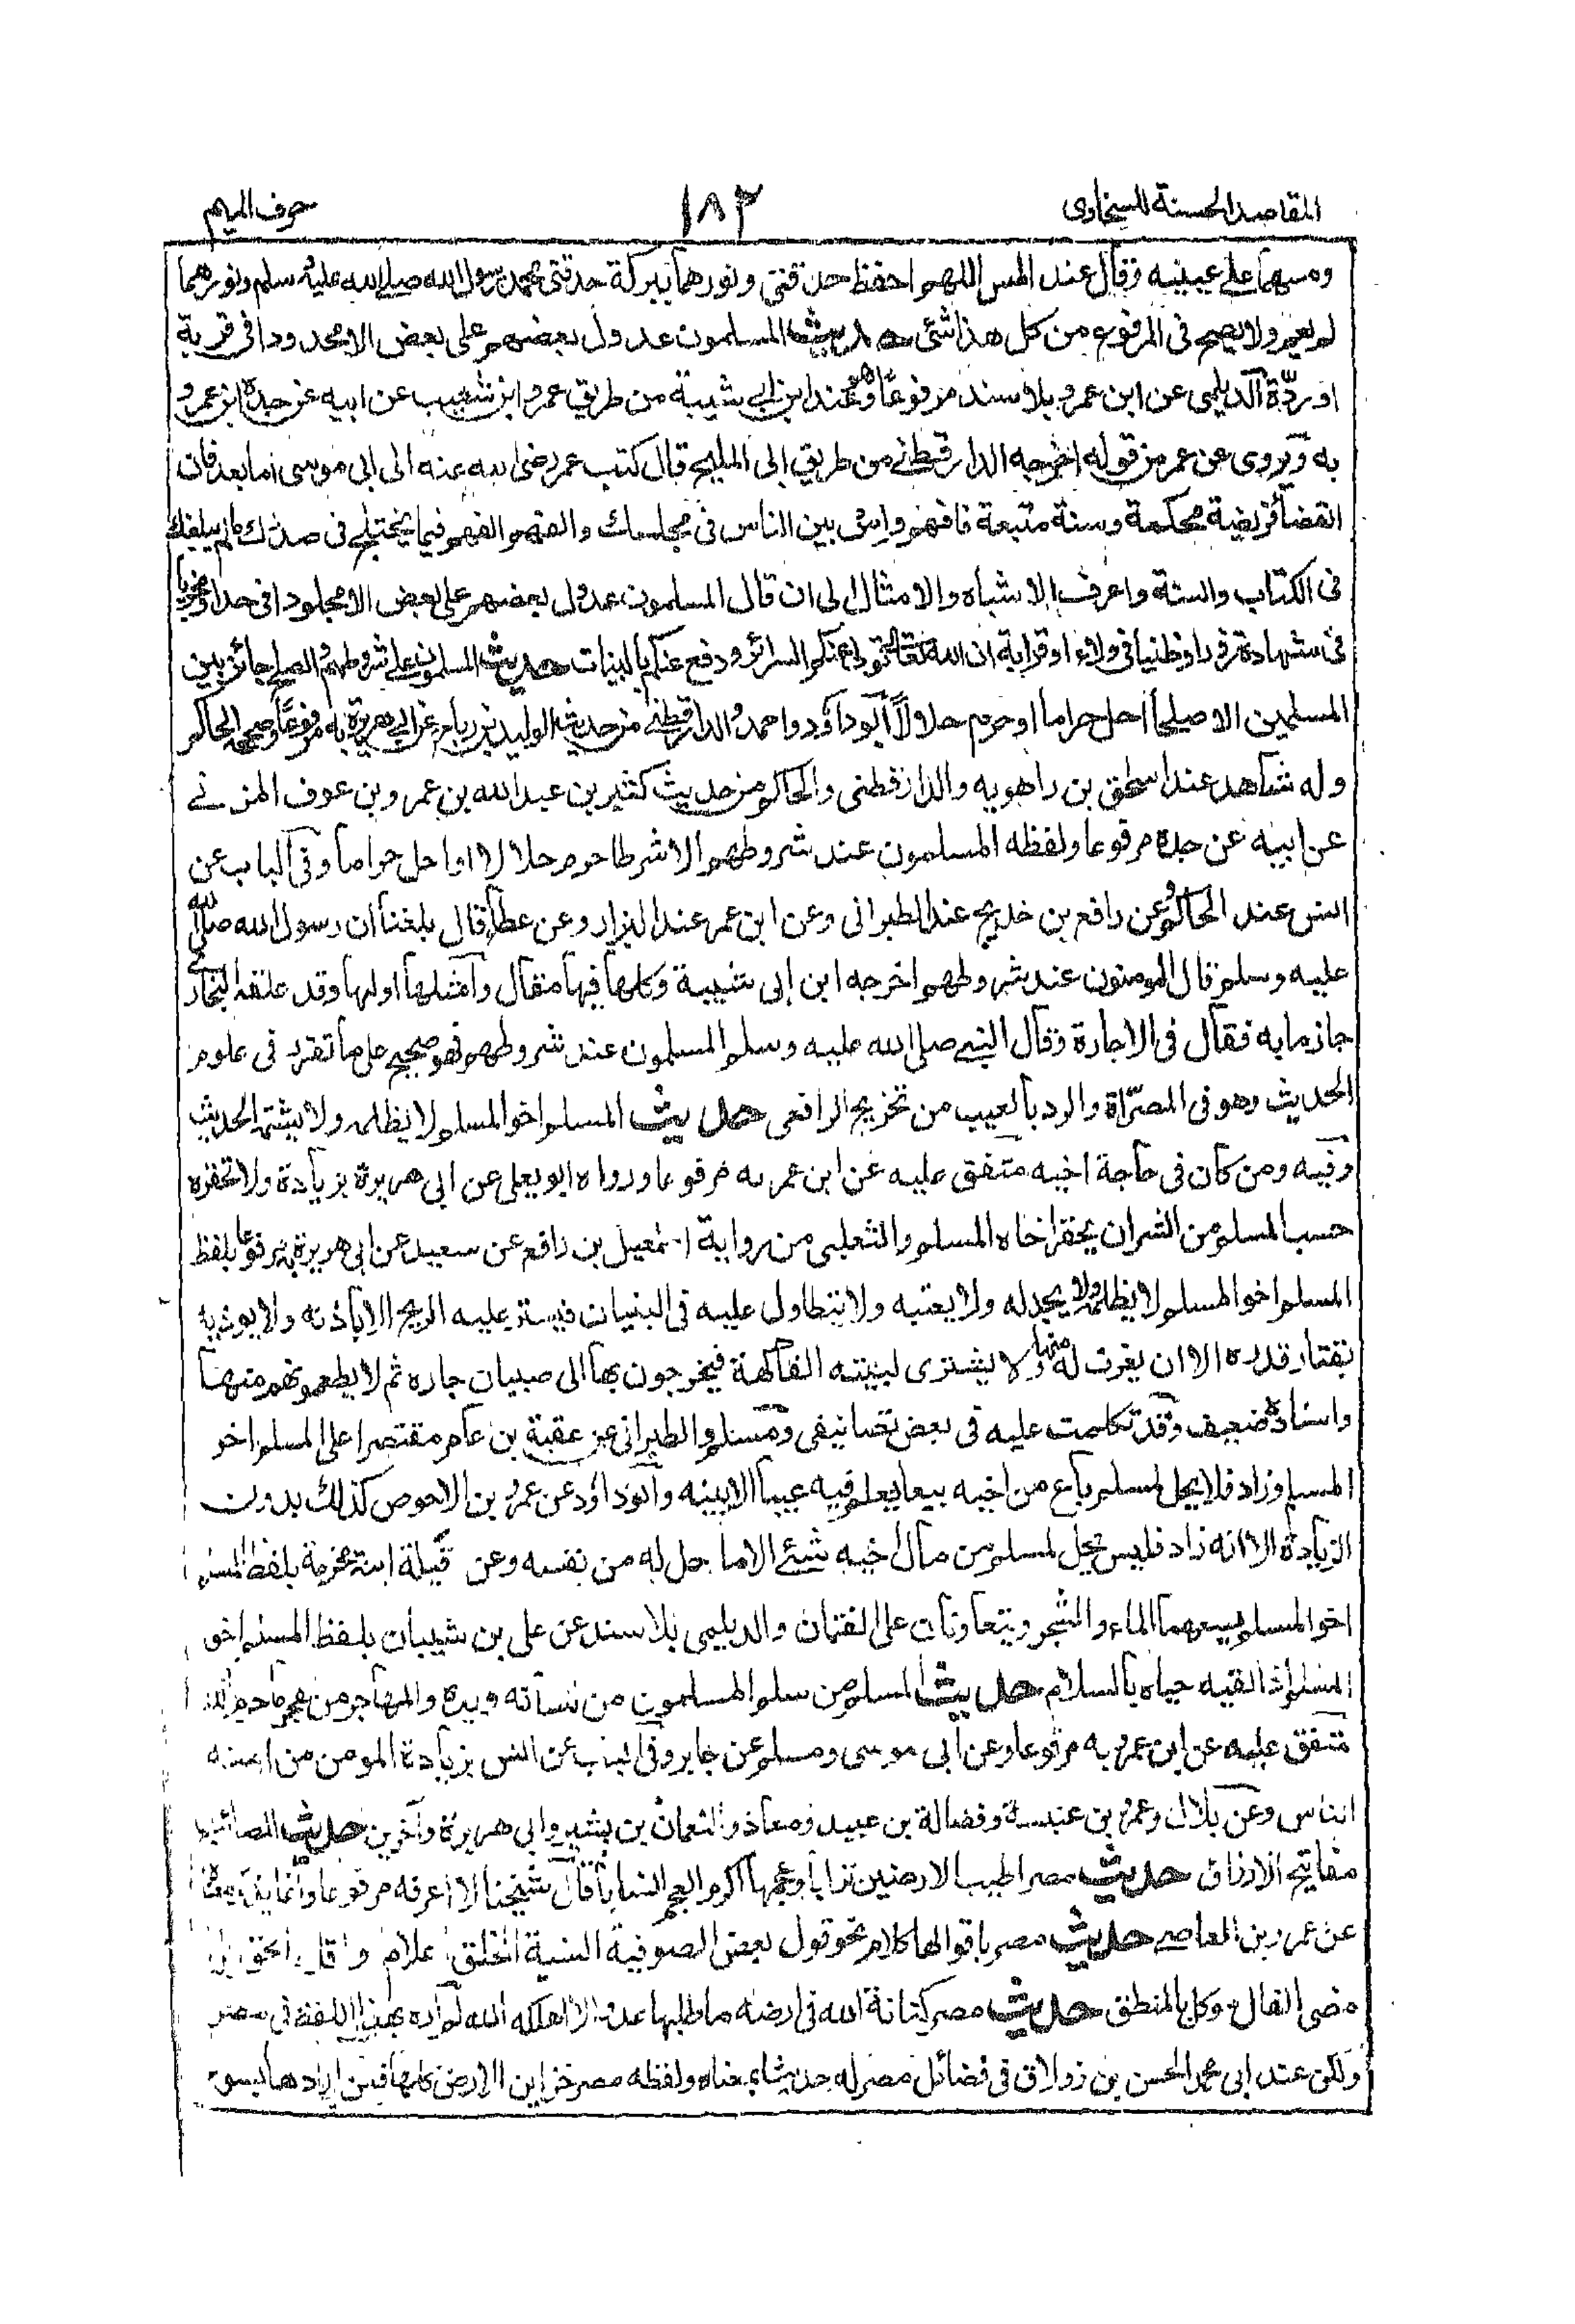 المقاصد الحسنة للسخاوى ١٨٢ حرف الميم
ومسهما على عينيه وقال عند المس اللهم احفظ حدقتى ونورهما ببركة حدقتى محمد رسول الله صلى الله عليه وسلم ونورهما
لم يعم ولا يصح فى المرفوع من كل هذا شئ حديث المسلمون عدول بعضهم على بعض الا محدودا فى فرية
اورده الديلمى عن ابن عمرو بلا سند مرفوعا وهو عند ابن ابى شيبة من طريق عمرو ابن شعيب عن ابيه عن جده ابن عمرو
به ويروى عن عمر من قوله اخرجه الدارقطنى من طريق ابى المليح قال كتب عمر رضى الله عنه الى ابى موسى اما بعد فان
القضا فريضة محكمة وسنة متبعة فافهم واس بين الناس فى مجلسك والفهم الفهم فيما يختلج فى صدرك مالم يبلغك
فى الكتاب والسنة واعرف الاشباه والامثال الى ان قال المسلمون عدول بعضهم على بعض الا مجلودا فى حد او مجربا
فى شهادة زور او ظنينا فى ولاء او قرابة ان الله تعالى تولى عنكم السرائر ودفع عنكم بالبينات حديث المسلمون على شروطهم والصلح جائز بين
المسلمين الا صلحا احل حراما او حرم حلالا ابو داؤد واحمد والدارقطنى من حديث الوليد بن رباح عن ابى هريرة به مرفوعا وصححه الحاكم
وله شاهد عند اسحق بن راهويه والدارقطنى والحاكم من حديث كثير بن عبد الله بن عمرو بن عوف المزنى
عن ابيه عن جده مرفوعا ولفظه المسلمون عند شروطهم الا شرطا حرم حلالا او احل حراما وفى الباب عن
انس عند الحاكم وعن رافع بن خديج عند الطبرانى وعن ابن عمر عند البزار وعن عطا قال بلغنا ان رسول الله صلى الله
عليه وسلم قال المومنون عند شروطهم اخرجه ابن ابى شيبة وكلها فيها مقال وامثلها اولها وقد علقه البخارى
جازما به فقال فى الاجارة وقال النبى صلى الله عليه وسلم المسلمون عند شروطهم فهو صحيح على ما تقرر فى علوم
الحديث وهو فى المصرّاة والرد بالعيب من تخريج الرافعى حديث المسلم اخو المسلم لا يظلمه ولا يشتمه الحديث
وفيه ومن كان فى حاجة اخيه متفق عليه عن ابن عمر به مرفوعا ورواه ابو يعلى عن ابى هريرة بزيادة ولا تحقره
حسب المسلم من الشر ان يحقر اخاه المسلم والثعلبى من رواية اسمعيل بن رافع عن سعيد عن ابى هريرة مرفوعا بلفظ
المسلم اخو المسلم لا يظلمه ولا يخذله ولا يعتبه ولا يتطاول عليه فى البنيان فيستر عليه الريح الا باذنه ولا يوذيه
بقتار قدره الا ان يغرف له منها ولا يشترى لبيته الفاكهة فيخرجون بها الى صبيان جاره ثم لا يطعمونهم منها
واسناده ضعيف وقد تكلمت عليه فى بعض تصانيفى ومسلم والطبرانى عن عقبة بن عامر مقتصرا على المسلم اخو
المسلم وزاد فلا يحل لمسلم باع من اخيه بيعا يعلم فيه عيبا الا بينه وابو داؤد عن عمرو بن الاحوص كذلك بدون
الزيادة الا انه زاد فليس يحل لمسلم من مال اخيه شيئ الا ما حل له من نفسه وعن قيلة ابنة مخرمة بلفظ المسلم
اخو المسلم يسعهما الماء والشجر ويتعاونان على الفتان والديلمى بلا سند عن على بن شيبان بلفظ المسلم اخو
المسلم اذا لقيه حياه بالسلام حديث المسلم من سلم المسلمون من لسانه ويده والمهاجر من هجر ما حرم الله
متفق عليه عن ابن عمرو به مرفوعا وعن ابى موسى ومسلم عن جابر وفى الباب عن انس بزيادة المومن من امنه
الناس وعن بلال وعمرو بن عنبسة وفضالة بن عبيد ومعاذ والنعمان بن بشير وابى هريرة وآخرين حديث المصائب
مفاتيح الارزاق حديث مصر اطيب الارضين ترابا وعجمها اكرم العجم انسابا قال شيخنا لا اعرفه مرفوعا وانما يذكر معناه
عن عمرو بن العاصى حديث مصر باقوالها كلام نحو قول بعض الصوفية السنية الخلق
مضى الفال وكل بالمنطق حديث مصر كنانة الله فى ارضه ما طلبها عدو الا اهلكه الله لم اره بهذا اللفظ فى مصر
ولكن عند ابى محمد الحسن بن زولاق فى فضائل مصر له حديثا بمعناه ولفظه مصر خزاين الارض كلها فمن ارادها بسوء